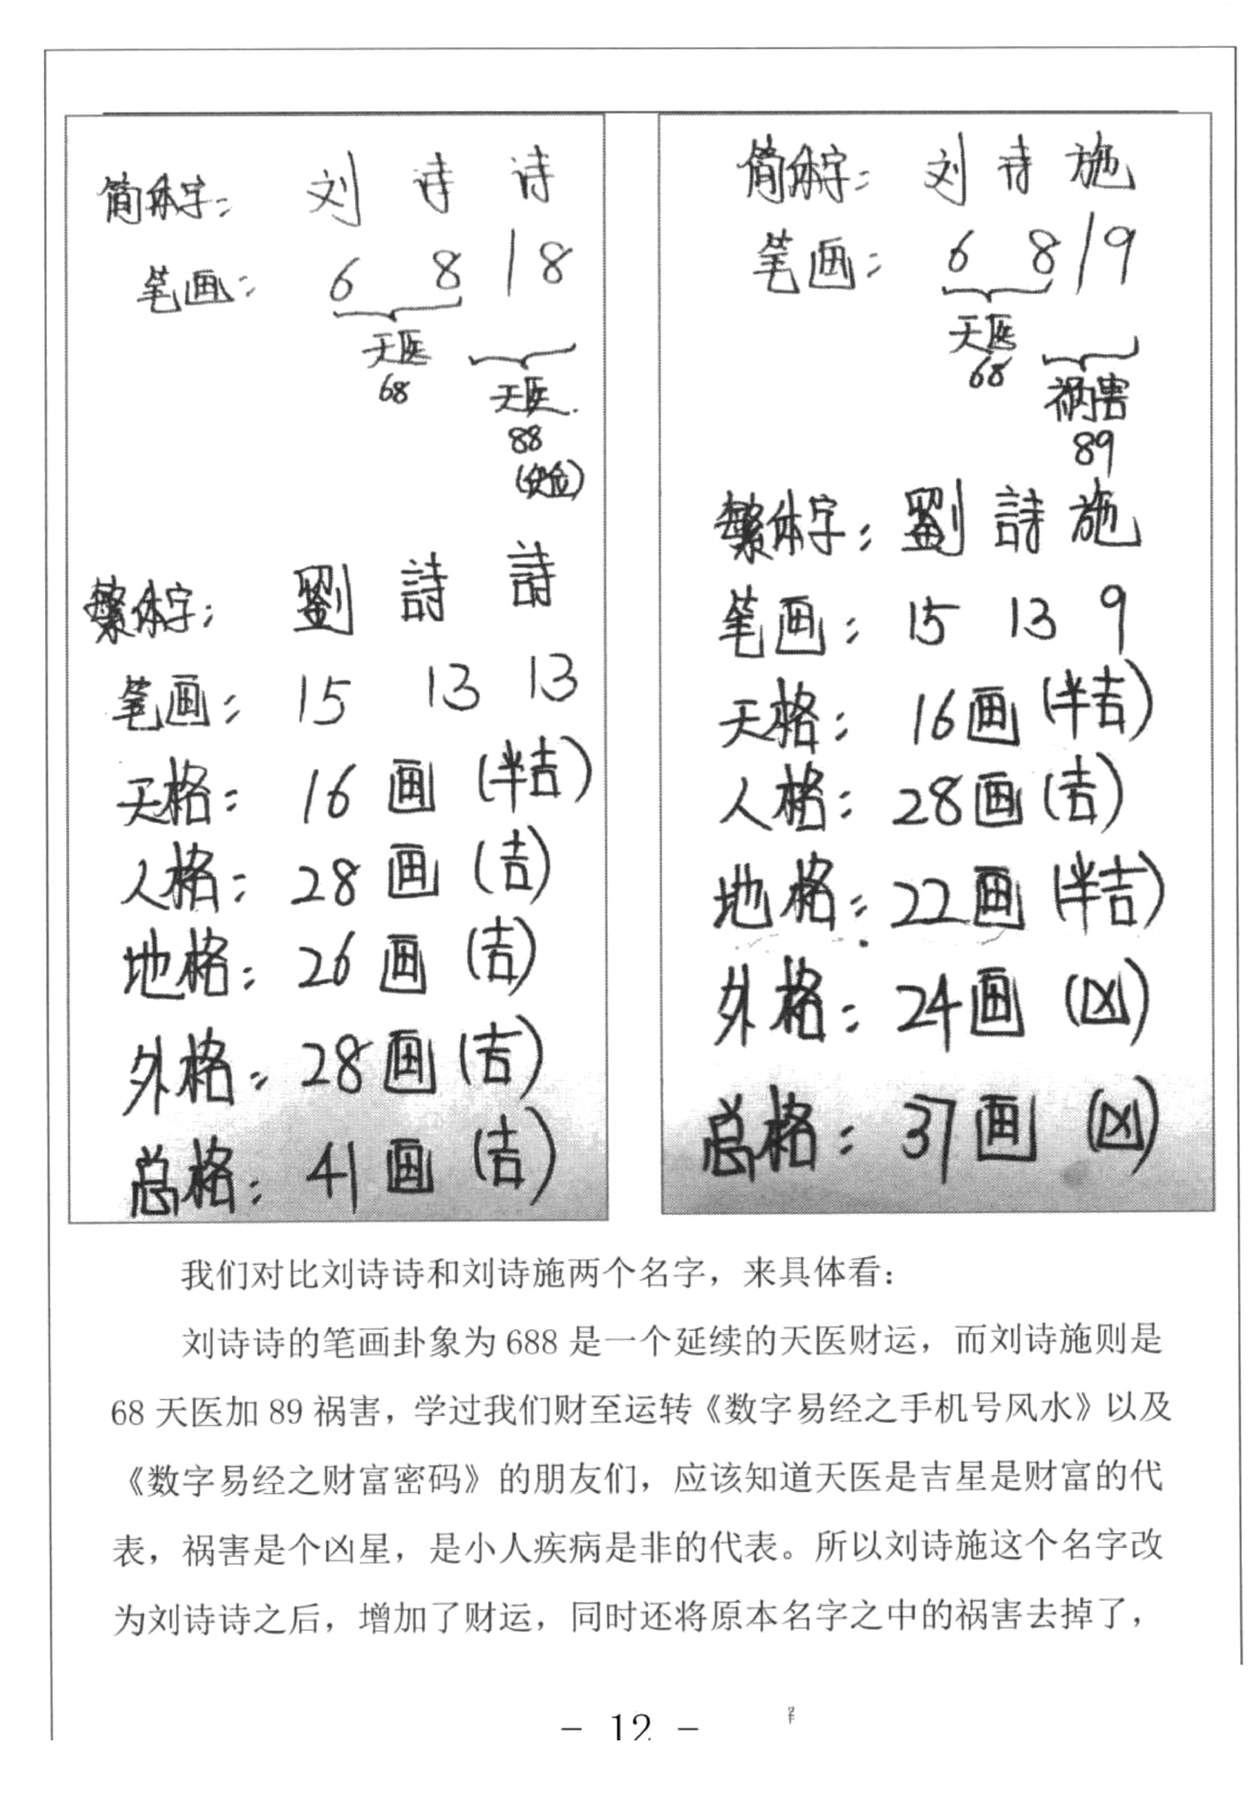 简体字: 刘 诗 诗
笔画: 6 8 18
天医
68
天医
88
繁体字: 劉 詩 詩
笔画: 15 13 13
天格: 16 画 (半吉)
人格: 28 画 (吉)
地格: 26 画 (吉)
外格: 28 画 (吉)
总格: 41 画 (吉)
简体字: 刘 诗 施
笔画: 6 8 19
天医
68
祸害
89
繁体字: 劉 詩 施
笔画: 15 13 9
天格: 16画 (半吉)
人格: 28画 (吉)
地格: 22画 (半吉)
外格: 24画 (凶)
总格: 37画 (凶)
我们对比刘诗诗和刘诗施两个名字，来具体看：
刘诗诗的笔画卦象为 688 是一个延续的天医财运，而刘诗施则是
68 天医加 89 祸害，学过我们财至运转《数字易经之手机号风水》以及
《数字易经之财富密码》的朋友们，应该知道天医是吉星是财富的代
表，祸害是个凶星，是小人疾病是非的代表。所以刘诗施这个名字改
为刘诗诗之后，增加了财运，同时还将原本名字之中的祸害去掉了，
- 12 -